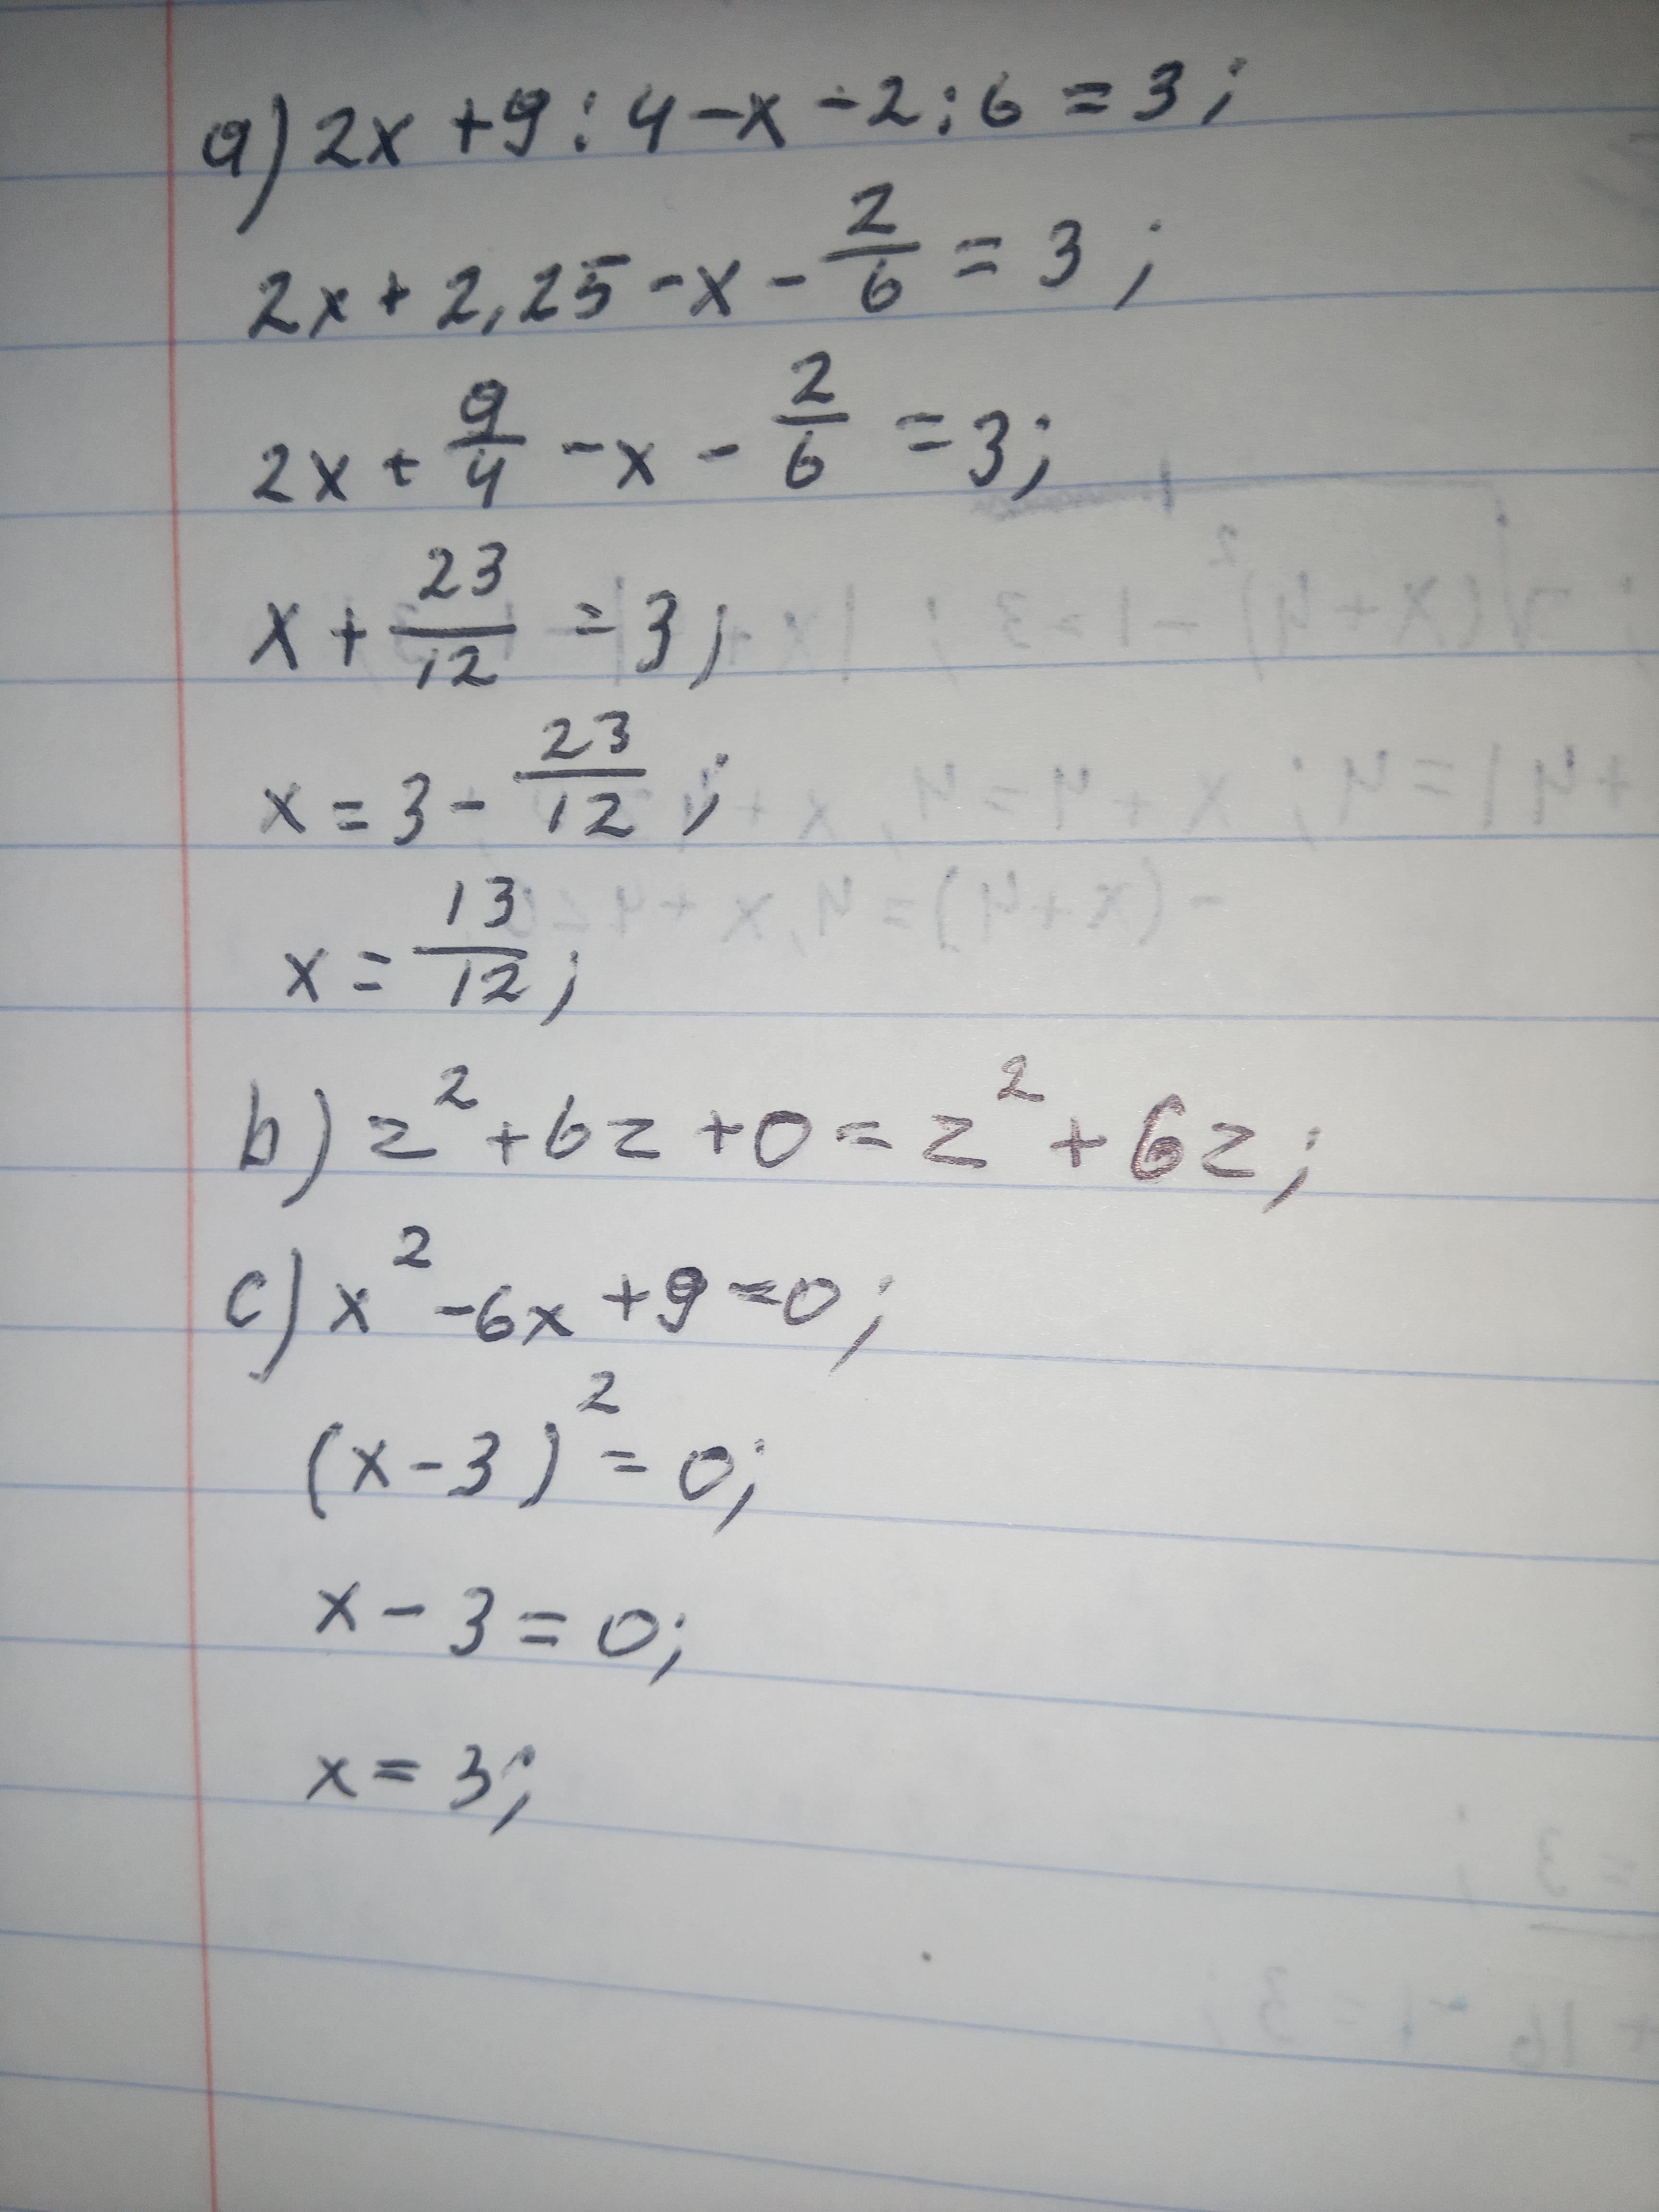 a) 2x + 9 : 4 - x - 2 : 6 = 3;
2x + 2,25 - x - 2/6 = 3;
2x + 9/4 - x - 2/6 = 3;
x + 23/12 = 3;
x = 3 - 23/12;
x = 13/12;
b) z² + 6z + 0 = z² + 6z;
c) x² - 6x + 9 = 0;
(x - 3)² = 0;
x - 3 = 0;
x = 3;